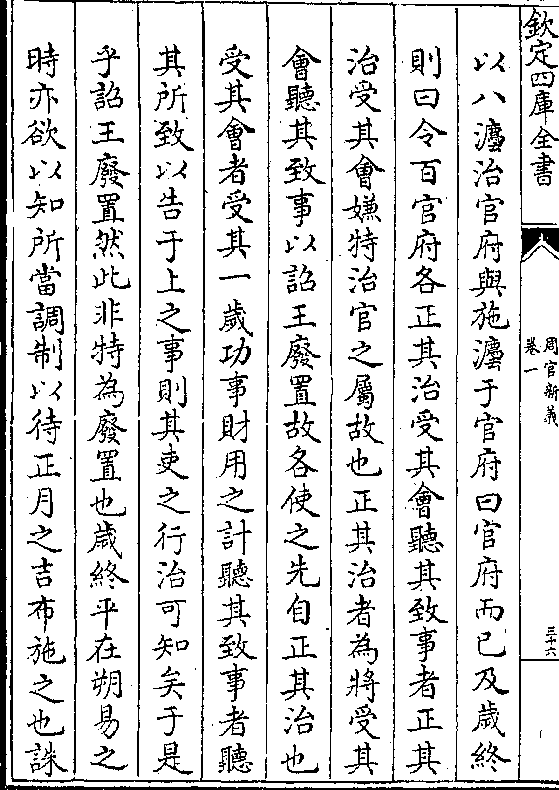 欽定四庫全書
周官新義
卷一
三十六
以八灋治官府與施灋于官府曰官府而已及歲終
則曰令百官府各正其治受其會聽其致事者正其
治受其會嫌特治官之屬故也正其治者為將受其
會聽其致事以詔王廢置故各使之先自正其治也
受其會者受其一歲功事財用之計聽其致事者聽
其所致以告于上之事則其吏之行治可知矣于是
乎詔王廢置然此非特為廢置也歲終平在朔易之
時亦欲以知所當調制以待正月之吉布施之也誅